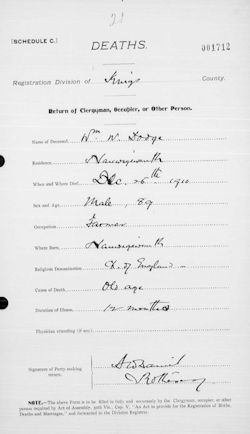 21
[SCHEDULE C.]
DEATHS.
001712
Registration Division of Kings County.
Return of Clergyman, Beechler, or Other Person.
Name of Deceased, Wm W. Dodge
Residence, Nauwigewauk
When and Where Died, Dec. 26th 1910
Sex and Age, Male, 89
Occupation, Farmer
Where Born, Nauwigewauk
Religious Denomination, Ch of England
Cause of Death, Old age
Duration of Illness, 12 months
Physician attending (if any)
Signature of Party making return,
Rothesay
NOTE.—The above Form is to be filled in fully and severally by the Clergyman, occupier, or other
person required by Act of Assembly, 50th Vic., Cap. V, "An Act to provide for the Registration of Births,
Deaths and Marriages," and forwarded to the Division Registrar.